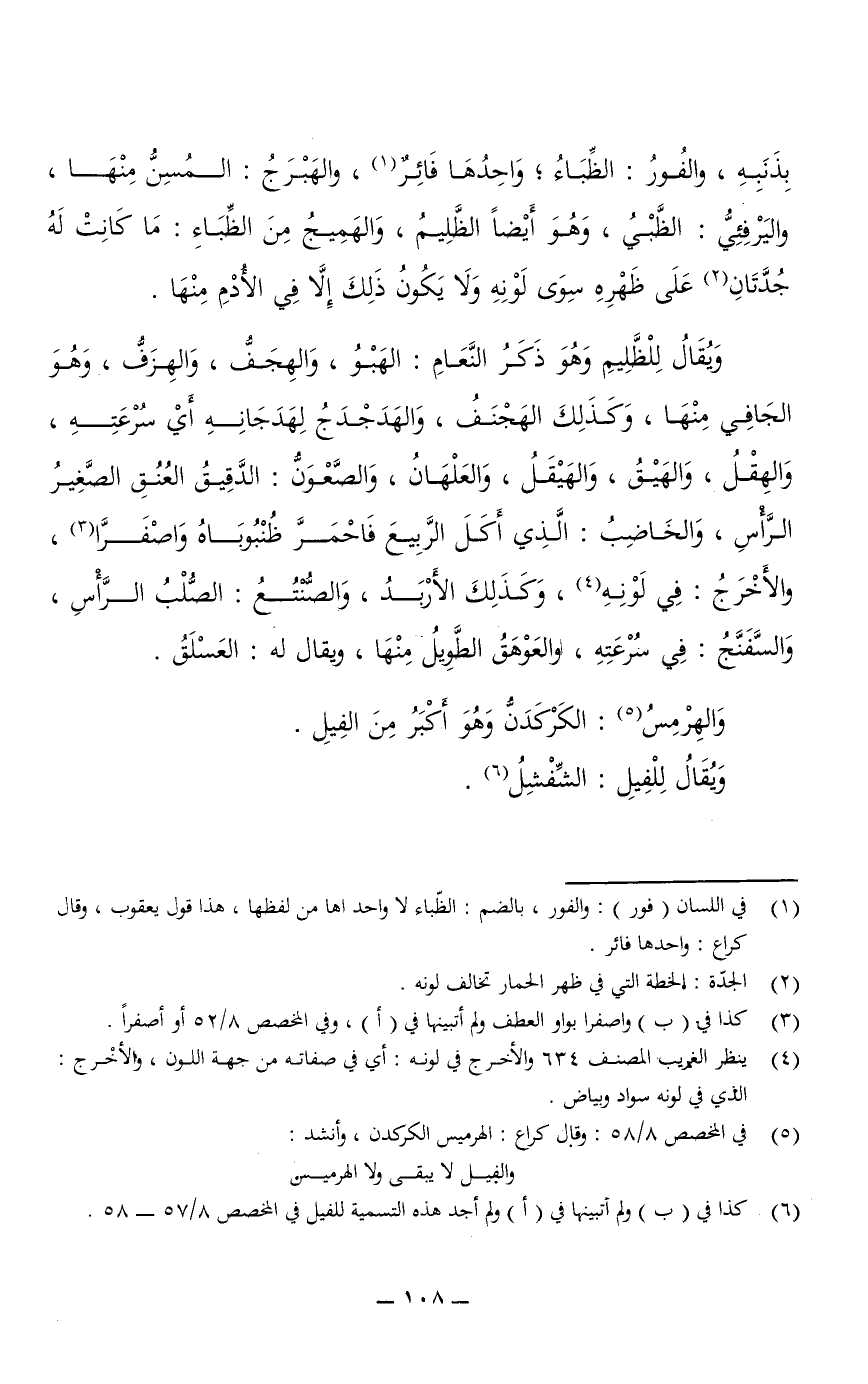 بِذَنَبِهِ ، والفُورُ : الظِّبَاءُ ؛ وَاحِدُهَا فَائِرٌ(١) ، والهَبْرَجُ : المُسِنُّ مِنْهَا ،
واليَرْفِئِيُّ : الظَّبْيُ ، وَهُوَ أَيْضاً الظَّلِيمُ ، وَالهَمِيجُ مِنَ الظِّبَاءِ : مَا كَانِتْ لَهُ
جُدَّتَانِ(٢) عَلَى ظَهْرِهِ سِوَى لَوْنِهِ وَلَا يَكُونُ ذَلِكَ إِلَّا فِي الأُدْمِ مِنْهَا .
وَيُقَالُ لِلْظَّلِيمِ وَهُوَ ذَكَرُ النَّعَامِ : الهَبْوُ ، وَالهِجَفُّ ، وَالهِزَفُّ ، وَهُوَ
الجَافِي مِنْهَا ، وَكَذَلِكَ الهَجْنَفُ ، وَالهَدَجْدَجُ لِهَدَجَانِهِ أَيْ سُرْعَتِهِ ،
وَالهِقْلُ ، وَالهَيْقُ ، وَالهَيْقَلُ ، وَالعَلْهَانُ ، وَالصَّعْوَنُّ : الدَّقِيقُ العُنُقِ الصَّغِيرُ
الرَّأْسِ ، وَالخَاضِبُ : الَّذِي أَكَلَ الرَّبِيعَ فَاحْمَرَّ ظُنْبُوبَاهُ وَاصْفَرَّا(٣) ،
والأَخْرَجُ : فِي لَوْنِهِ(٤) ، وَكَذَلِكَ الأَرْبَدُ ، وَالصُّنْتُعُ : الصُّلْبُ الرَّأْسِ ،
وَالسَّفَنَّجُ : فِي سُرْعَتِهِ ، والعَوْهَقُ الطَّوِيلُ مِنْهَا ، ويقال له : العَسْلَقُ .
وَالهِرْمِسُ(٥) : الكَرْكَدَنُّ وَهُوَ أَكْبَرُ مِنَ الفِيلِ .
وَيُقَالُ لِلْفِيلِ : الشِّفْشِلُ(٦) .
(١) في اللسان ( فور ) : والفور ، بالضم : الظّباء لا واحد اها من لفظها ، هذا قول يعقوب ، وقال
كراع : واحدها فائر .
(٢) الجدّة : الخطة التي في ظهر الحمار تخالف لونه .
(٣) كذا في ( ب ) واصفرا بواو العطف ولم أتبينها في ( أ ) ، وفي المخصص ٥٢/٨ أو أصفراً .
(٤) ينظر الغريب المصنف ٦٣٤ والأخرج في لونه : أي في صفاته من جهة اللون ، والأخْرج :
الذي في لونه سواد وبياض .
(٥) في المخصص ٥٨/٨ : وقال كراع : الهرميس الكركدن ، وأنشد :
والفيل لا يبقى ولا الهرميس
(٦) كذا في ( ب ) ولم أتبينها في ( أ ) ولم أجد هذه التسمية للفيل في المخصص ٥٧/٨ — ٥٨ .
— ١٠٨ —